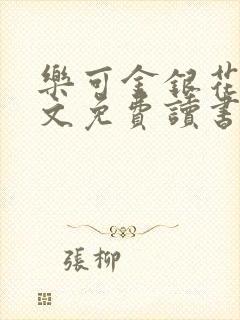 樂可金銀花
文免費讀書
張柳